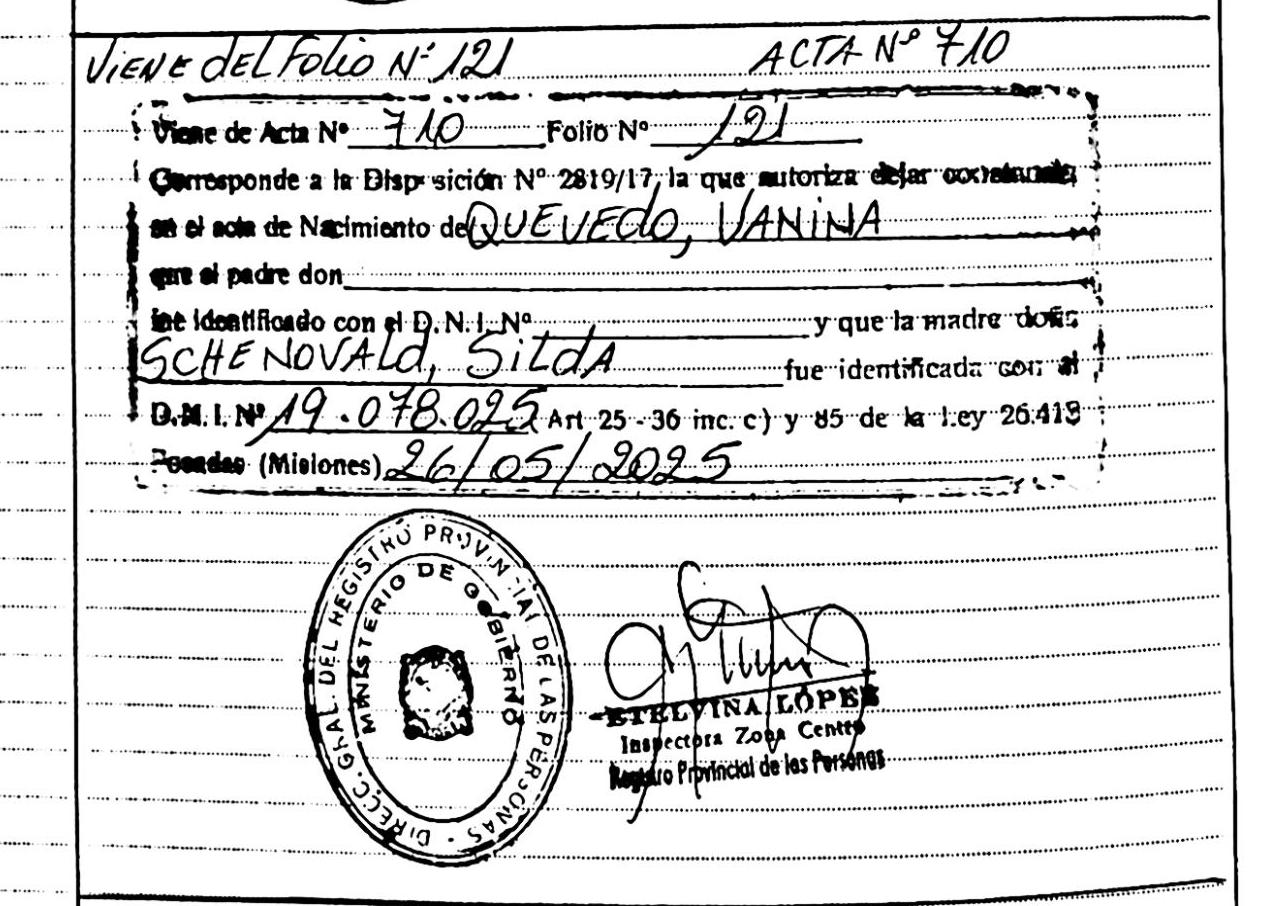 ViENE dEL Folio Nº 121 ACTA Nº 710
Viene de Acta Nº 710 Folio Nº 121
Corresponde a la Disposición Nº 2819/17, la que autoriza dejar constancia
en el acta de Nacimiento de QUEVEdO, VANiNA
que el padre don
fue identificado con el D.N.I. Nº y que la madre doña
SCHENOVALd, SiLdA fue identificada con el
D.N.I. Nº 19.078.025 (Art 25 - 36 inc. c) y 85 de la Ley 26.413
Posadas (Misiones) 26/05/2025
DIRECC. GRAL. DEL REGISTRO PROVINCIAL DE LAS PERSONAS
MINISTERIO DE GOBIERNO
ETELVINA LÓPEZ
Inspectora Zona Centro
Registro Provincial de las Personas